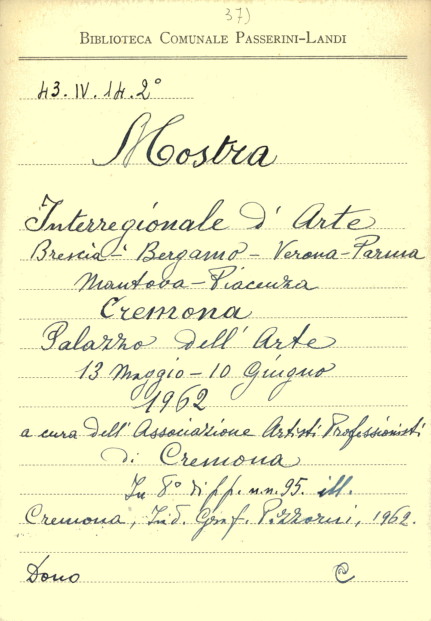 37)
BIBLIOTECA COMUNALE PASSERINI-LANDI
43. IV. 14. 2°
Mostra
Interregionale d'Arte
Brescia - Bergamo - Verona - Parma
Mantova - Piacenza
Cremona
Palazzo dell'Arte
13 Maggio - 10 Giugno
1962
a cura dell'Associazione Artisti Professionisti
di Cremona
In 8° di pp. n.n. 95. ill.
Cremona, Ind. Graf. Pizzorni, 1962.
Dono C